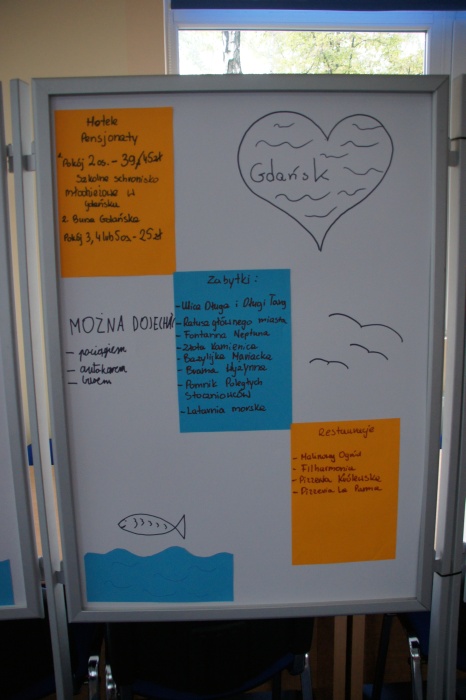 Hotele
Pensjonaty
1. Pokój 2 os. - 39,45 zł
Szkolne schronisko
młodzieżowe w
Gdańsku
2. Bursa Gdańska
Pokój 3,4 lub 5 os. - 25 zł
Gdańsk
Zabytki:
- Ulica Długa i Długi Targ
- Ratusz głównego miasta
- Fontanna Neptuna
- Złota Kamienica
- Bazylika Mariacka
- Brama Wyżynna
- Pomnik Poległych
Stoczniowców
- Latarnia morska
MOŻNA DOJECHAĆ
- pociągiem
- autokarem
- busem
Restauracje
- Malinowy Ogród
- Filharmonia
- Pizzeria Królewska
- Pizzeria La Parma